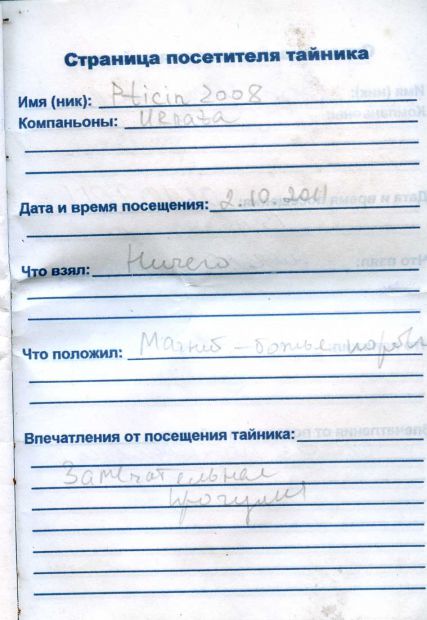 Страница посетителя тайника
Имя (ник): Pticin 2008
Компаньоны:
Дата и время посещения: 2.10.2011
Что взял: Ничего
Что положил: Магнит - божья
Впечатления от посещения тайника:
Замечательная
прогулка